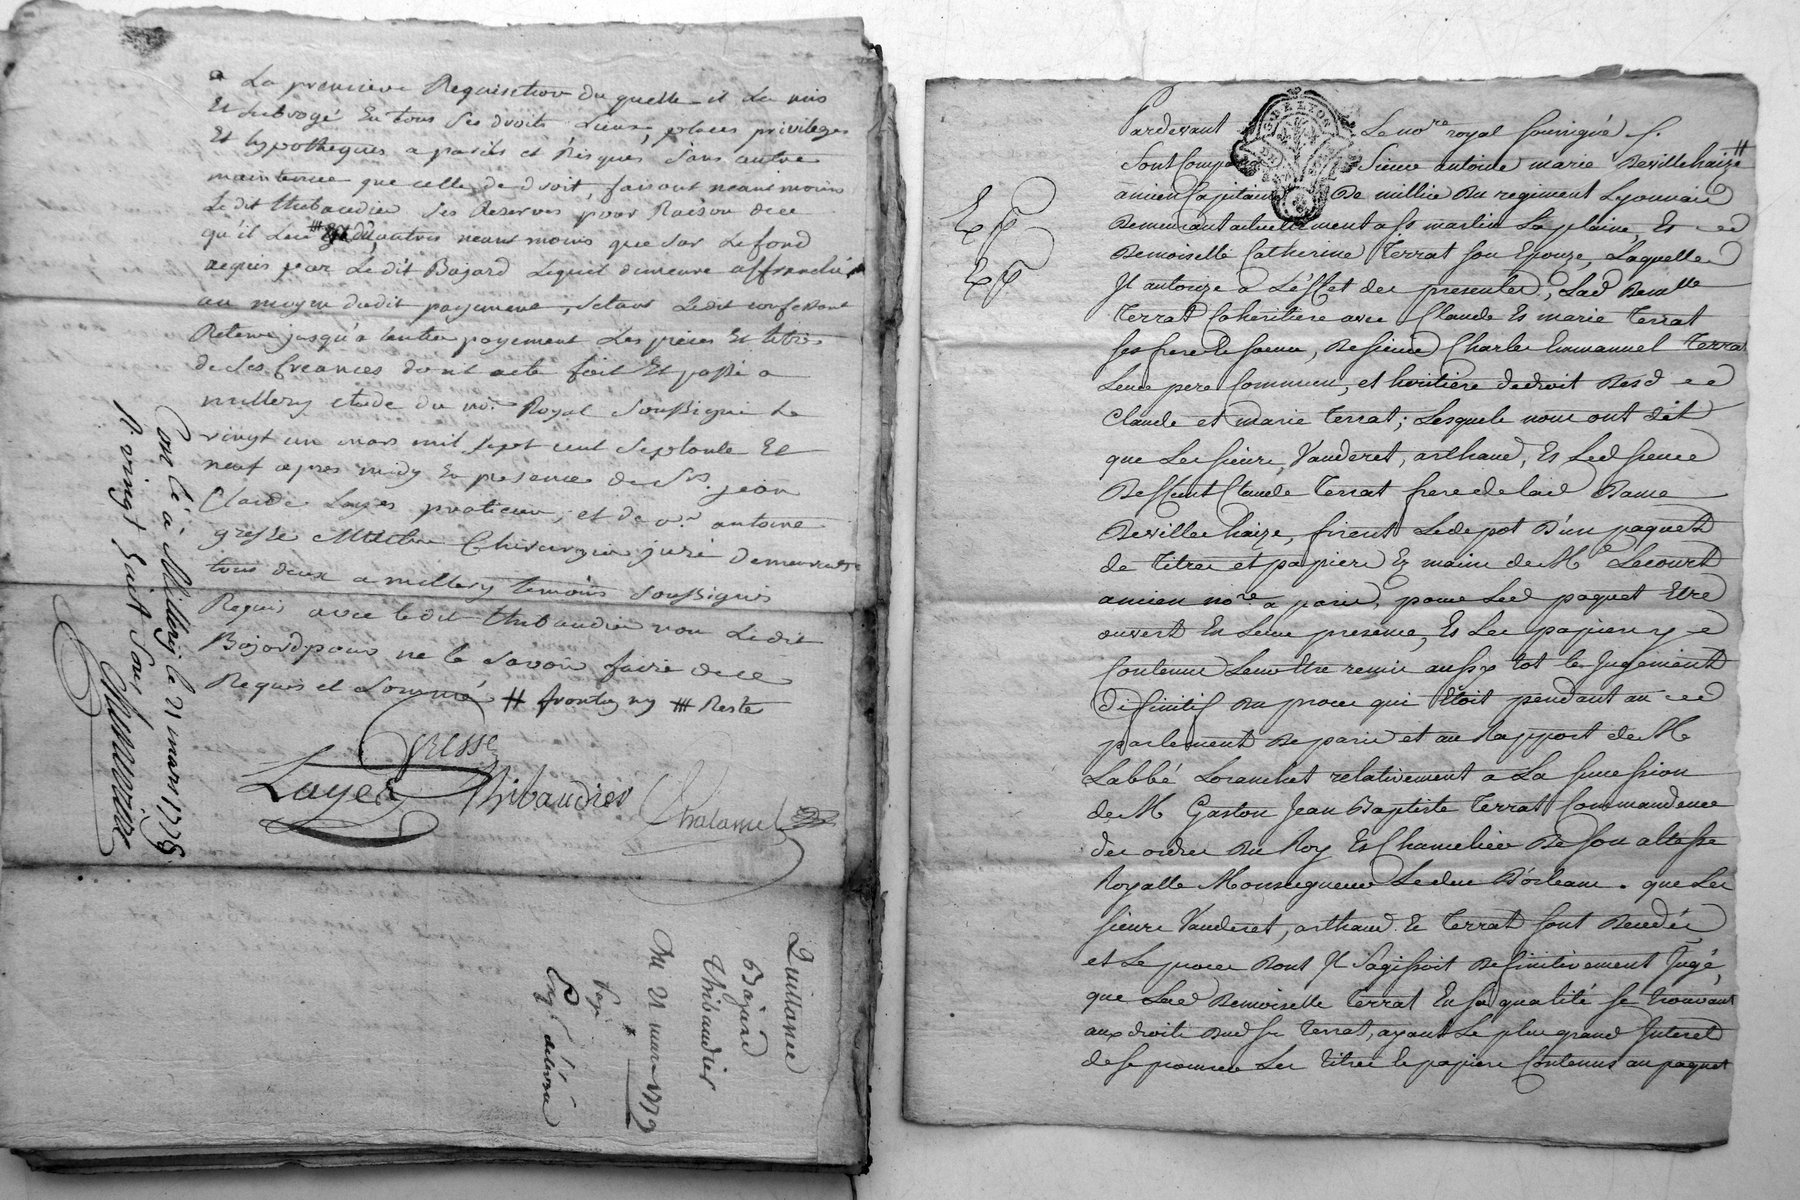 La premiere Requisition du quelle il La mis
Et subrogé En tous ses droits, Lieux, places privileges
Et hypotheques a perils et Risques Sans autre
maintenue que celle de droit, faisant neantmoins
Ledit thibaudier Ses Reserves pour Raison de ce
qu'il Leur autres neant moins que Sur Le fond
acquis par Ledit Bajard Lequel demeure affranchi
au moyen dudit payement, ledit confessant
Retenir jusqu'a lentier payement Les pieces Et titres
de Ses Creances dont acte fait Et passé a
millery etude du no.re Royal Soussigné Le
vingt un mars mil Sept cent Septante Et
neuf apres midy En presence de Sr. jean
Claude Layes praticien, et de Sr. antoine
gresse Chirurgien juré demeurants
tous deux a millery temoins Soussignés
Requis avec ledit thibaudier non Ledit
Bajard pour ne le Savoir faire de ce
Requis et Sommé # frontigny ⧻ Reste
Gresse
Layes
Thibaudier
Chalamel
Con.lé à Millery le 21 mars 1779
R. vingt huit Sous
Quittance
Bajard
Thibaudier
Du 21 mars 1779
Exp. délivré
Pardevant Le no.re royal soussigné
Sont Comparu Sieur antoine marie Devillechaize #
ancien Capitaine De millice Du regiment Lyonnais
Demeurant actuellement a St martin La plaine, Et
Demoiselle Catherine Terrat son Epouze, Laquelle
Il autorize a L'effet des presentes, Lad. Dem.lle
Terrat Coheritiere avec Claude Et marie Terrat
ses frere et soeur, De sieur Charles Emmanuel Terrat
Leur pere Commun, et heritiere de droit Desd
Claude et marie Terrat; Lesquels nous ont dit
que Les sieurs Vanderet, arthaud, Et Led sieur
Deffunt Claude Terrat frere de lad Dame
Devillechaize, firent Le depot D'un paquet
de titres et papiers Es mains de Me Lecourt
ancien no.re a paris, pour Led paquet Etre
ouvert En Leur presence, Et Les papiers y
Contenus Leur Etre remis aussy tot le Jugement
Difinitif Du proces qui Etoit pendant au
parlement De paris et au Rapport de M
Labbé Lorenchet relativement a La succession
de M Gaston Jean Baptiste Terrat Commandeur
des ordres Du Roy Et Chancelier De Son altesse
Royalle Monseigneur Le duc D'orleans. que Les
sieurs Vanderet, arthaud Et Terrat sont Decedés
et Le proces Dont Il S'agissoit Definitivement Jugé,
que Lad Demoiselle Terrat En Sa qualité Se trouvant
aux droits Dud Sr Terrat, ayant Le plus grand Interet
de Se procurer Les titres et papiers Contenus au paquet
Exp
Exp
G. DE LYON